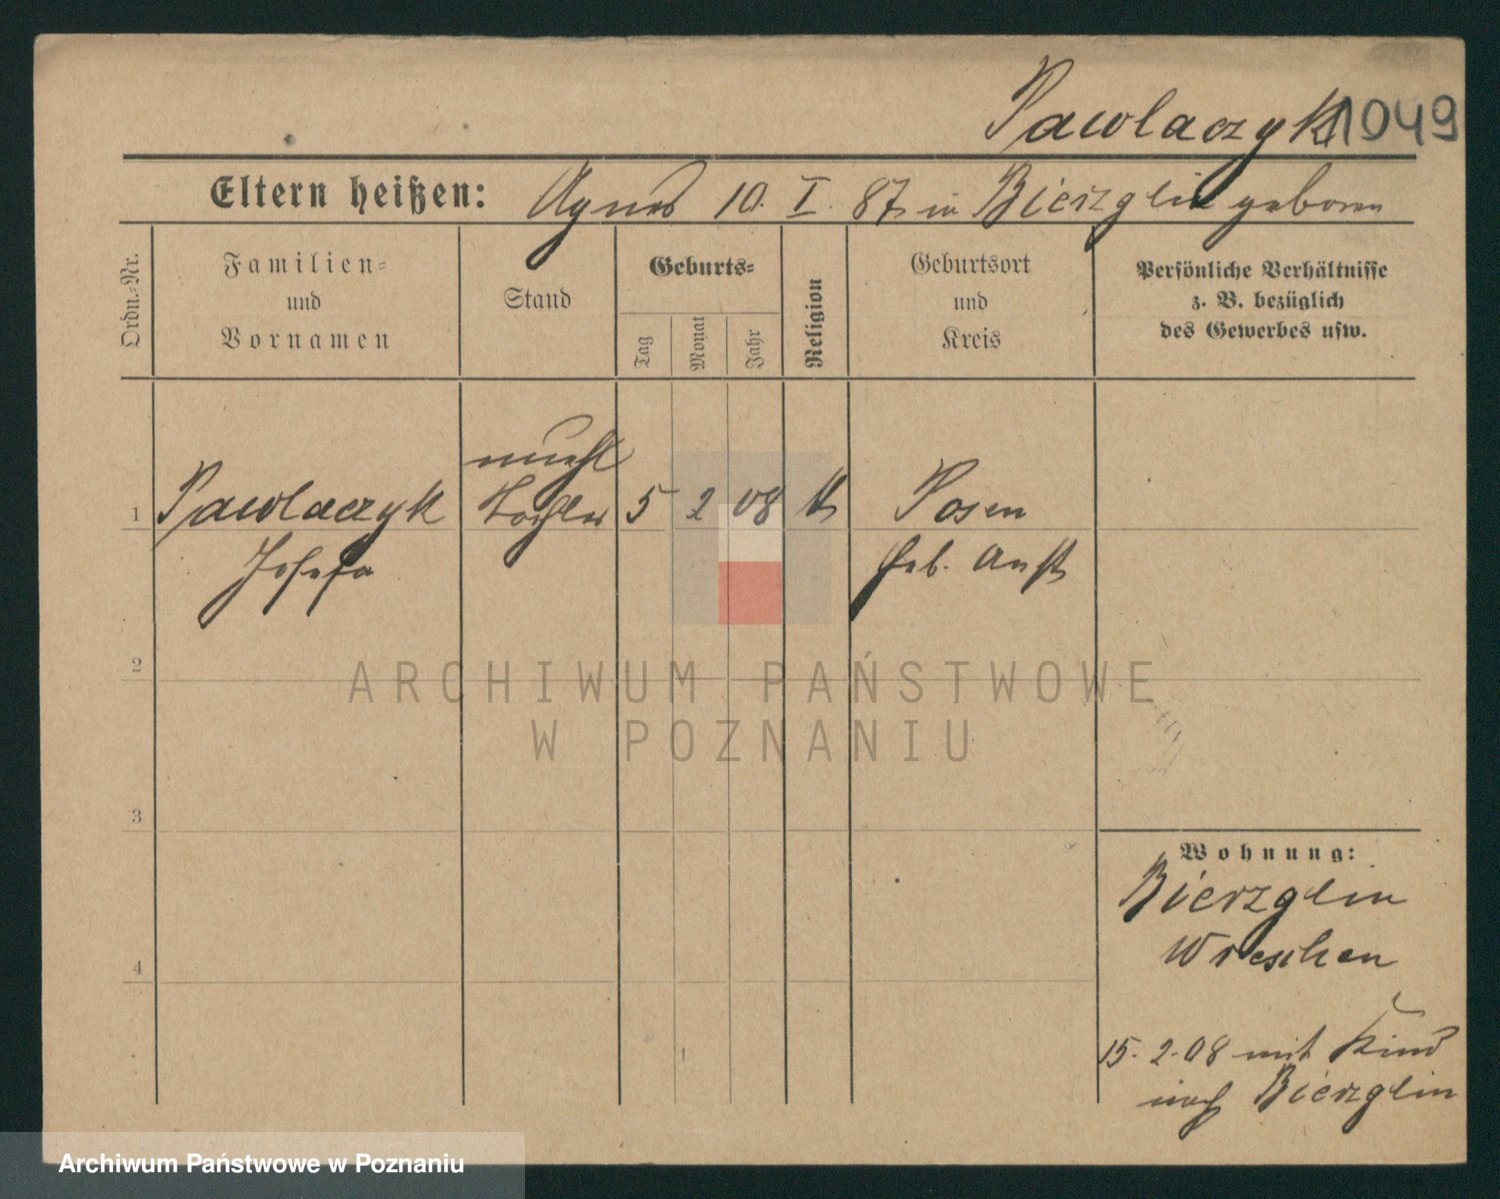 Pawlaczyk 1049
Eltern heißen: Agnes 10. I. 87 in Bierzglin geboren
Ordn.-Nr.
Familien-
und
Vornamen
Stand
Geburts-
Tag
Monat
Jahr
Religion
Geburtsort
und
Kreis
Persönliche Verhältnisse
z. B. bezüglich
des Gewerbes usw.
unehl
1 Pawlaczyk Tochter 5 2 08 k Posen
Josefa Geb. Anst
2
ARCHIWUM PAŃSTWOWE
W POZNANIU
3
Wohnung:
Bierzglin
Wreschen
4
15. 2. 08 mit Kind
nach Bierzglin
Archiwum Państwowe w Poznaniu